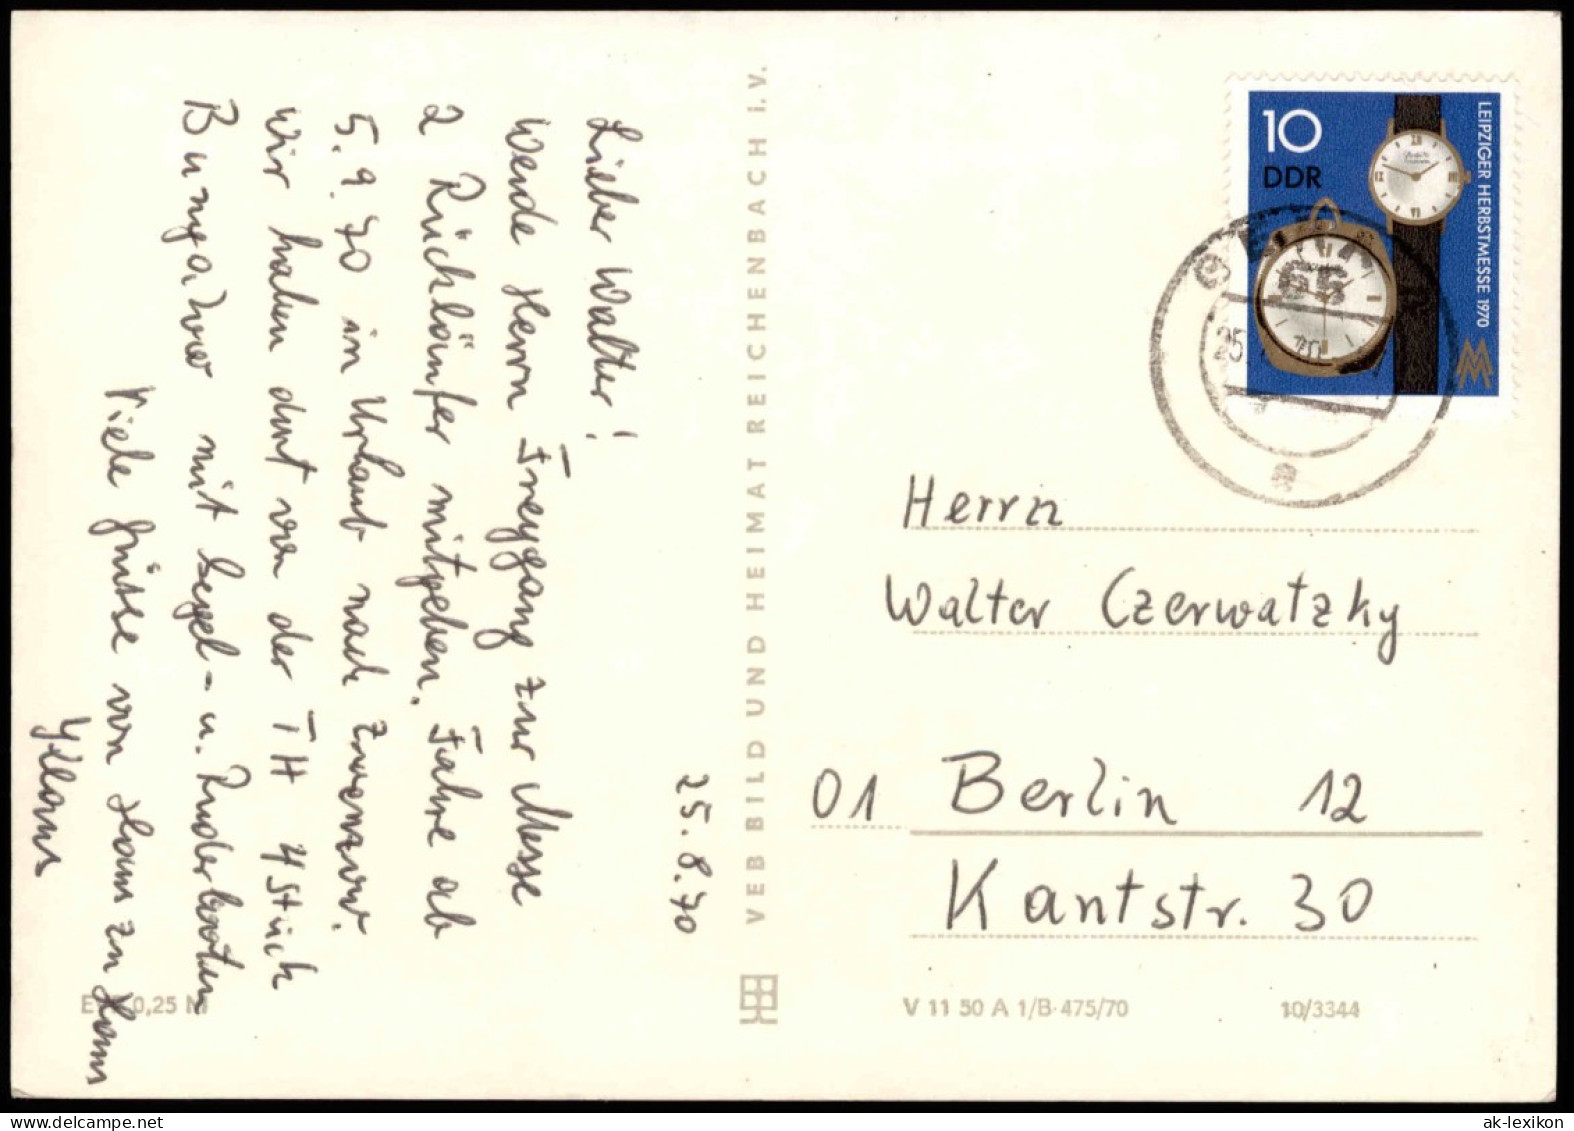 25.8.70
Lieber Walter!
Werde Herrn Freygang zur Messe
2 Rückläufer mitgeben. Fahre ab
5.9.70 in Urlaub nach
Wir haben dort von der TH 4 Stück
Bungalow mit Segel- u. Ruderbooten
Viele Grüße von Haus zu Haus
VEB BILD UND HEIMAT REICHENBACH I.V.
10
DDR
LEIPZIGER HERBSTMESSE 1970
MM
25.
Herrn
Walter Czerwatzky
01 Berlin 12
Kantstr. 30
0,25 M
V 11 50 A 1/B·475/70
10/3344
ak-lexikon